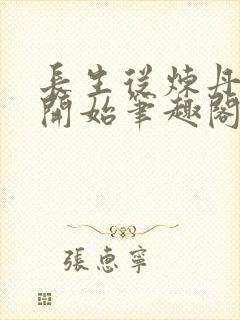 長生從煉丹
開始筆趣閣
張惠寧